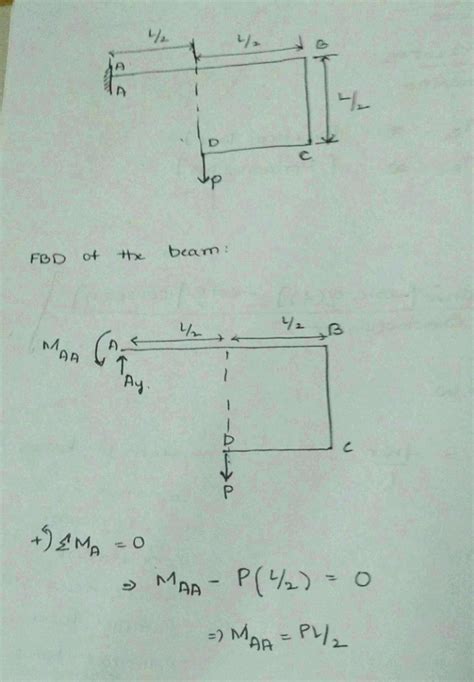 L/2 L/2
A B
A
L/2
D C
P
FBD of the beam:
L/2 L/2
M_AA A B
Ay.
D C
P
+) ΣM_A = 0
⇒ M_AA - P(L/2) = 0
⇒ M_AA = PL/2